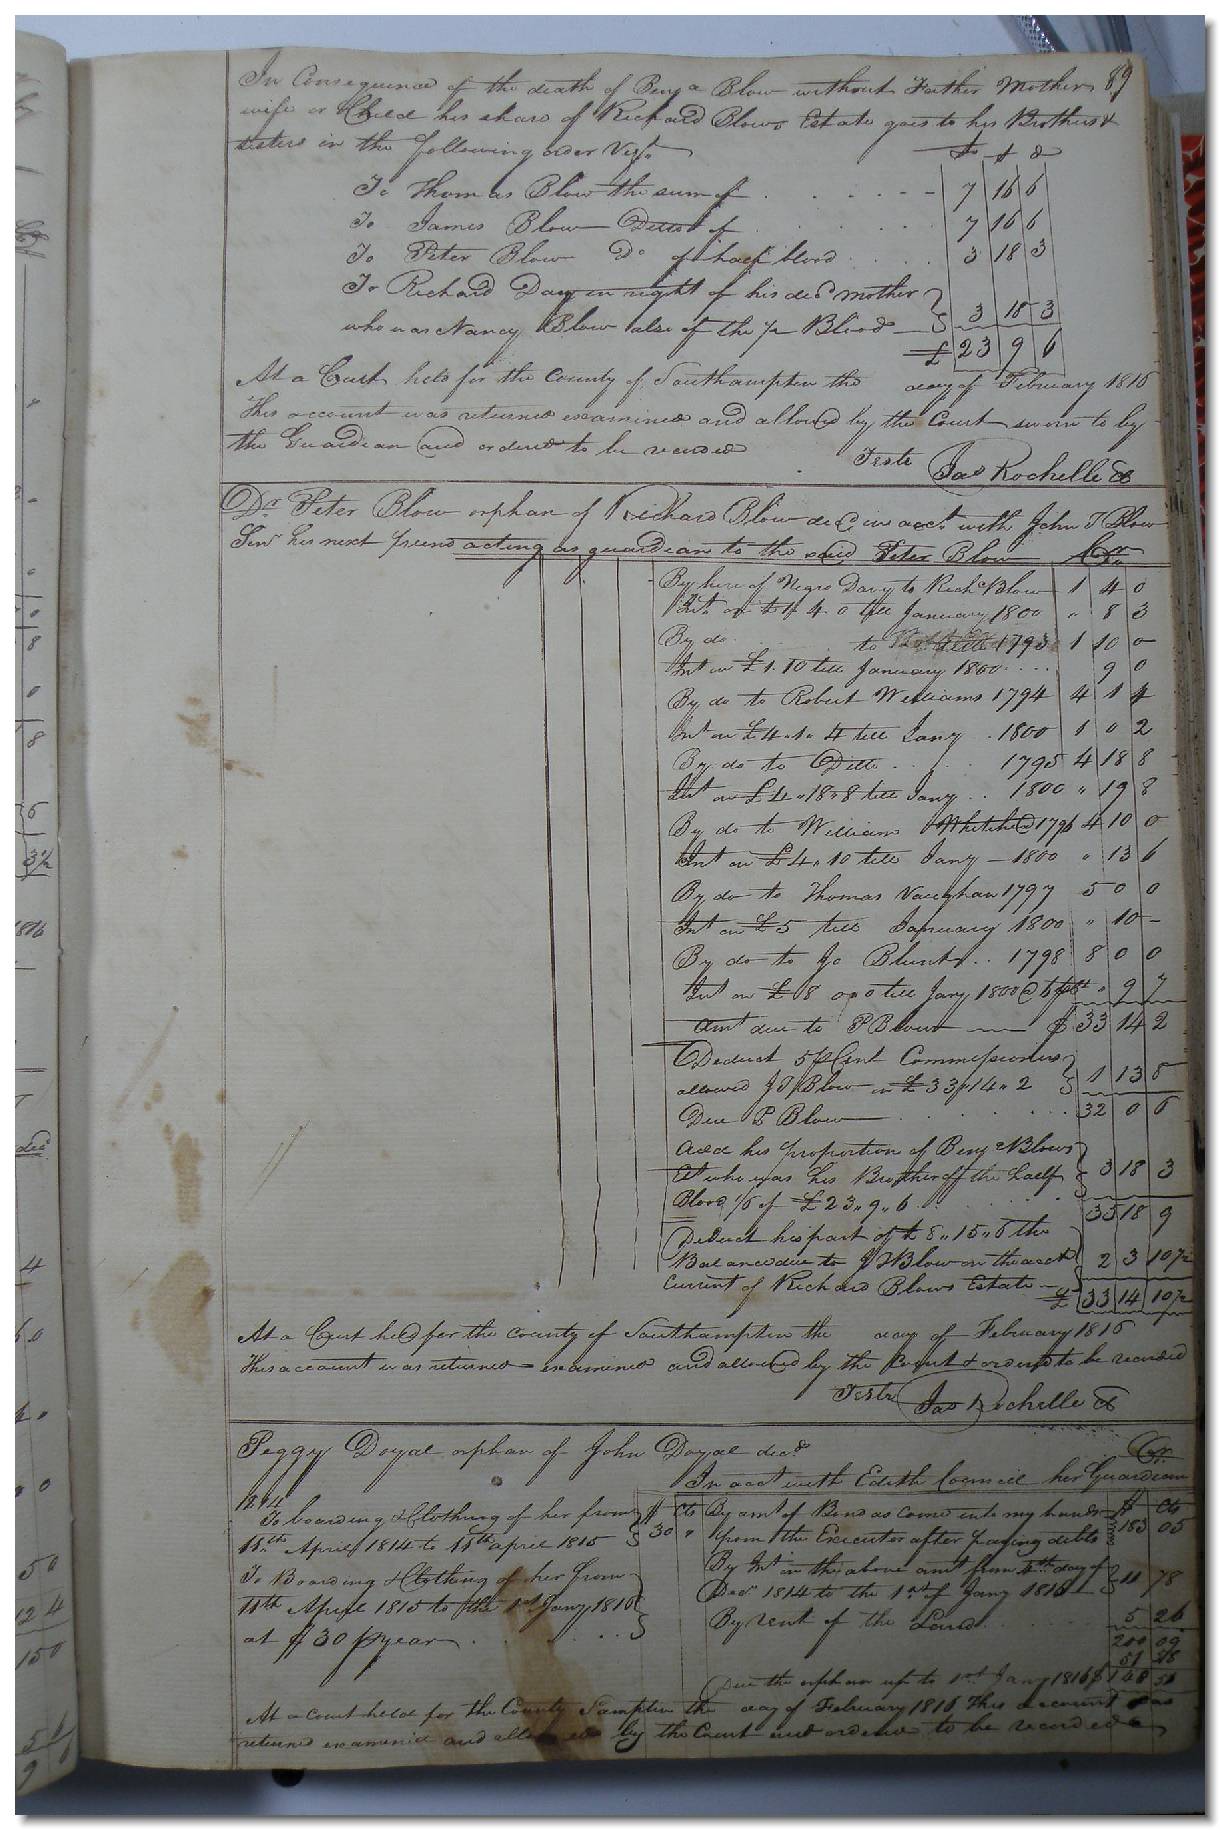 In Consequence of the death of Benja Blow without Father Mother 89
wife or Child his share of Richard Blows Estate goes to his Brothers &
sisters in the following order Viz.
£ S D
To Thomas Blow the sum of 7 16 6
To James Blow Ditto of 7 16 6
To Peter Blow Do of half blood 3 18 3
To Richard Day in right of his decd mother
who was Nancy Blow also of the ½ Blood 3 18 3
£ 23 9 6
At a Court held for the County of Southampton the day of February 1816
This account was returned examined and allowed by the Court sworn to by
the Guardian and ordered to be recorded
Teste Jas Rochelle
Dr Peter Blow orphan of Richard Blow decd in acct with John T Blow
Senr his next friend acting as guardian to the said Peter Blow Cr
By hire of Negro Davy to Richd Blow 1 4 0
Int on £1 4 0 till January 1800 " 8 3
By do to 1793 1 10 0
Int on £1.10 till January 1800 9 0
By do to Robert Williams 1794 4 1 4
Int on £4.1.4 till Jany 1800 1 0 2
By do to Ditto 1795 4 18 8
Int on £4"18"8 till Jany 1800 " 19 8
By do to William Whitehead 1796 4 10 0
Int on £4"10 till Jany 1800 " 13 6
By do to Thomas Vaughan 1797 5 0 0
Int on £5 till January 1800 " 10 -
By do to Jo Blunt 1798 8 0 0
Int on £8 0 0 till Jany 1800 @ " 9 7
Amt due to P Blow £ 33 14 2
Deduct 5 p Cent Commissions
allowed J T Blow on £33"14"2 1 13 8
Due P Blow 32 0 6
Add his proportion of Benja Blows
Et who was his Brother of the half
Blood 1/6 of £23"9"6 3 18 3
35 18 9
Deduct his part of £8"15"6 the
Balance due to J T Blow on the acct 2 3 10½
Current of Richard Blows Estate
£ 33 14 10½
At a Court held for the County of Southampton the day of February 1816
This account was returned examined and allowed by the Court & ordered to be recorded
Teste Jas Rochelle
Peggy Doyal orphan of John Doyal decd Cr
In acct with Edith Council her Guardian
1814 $ Cts $ Cts
To boarding & Clothing of her from
11th April 1814 to 11th april 1815 30 "
To Boarding & Clothing of her from
11th April 1815 to the 1st Jany 1816
at $30 p year
By amt of Bond as come into my hands
from the Executor after paying debts 183 05
By Int on the above amt from day of
Decr 1814 to the 1st of Jany 1816 11 78
By rent of the Land 5 26
200 09
Due the orphan up to 1st Jany 1816 $
At a Court held for the County Sampton the day of February 1816 This account was
returned examined and allowed by the Court and ordered to be recorded